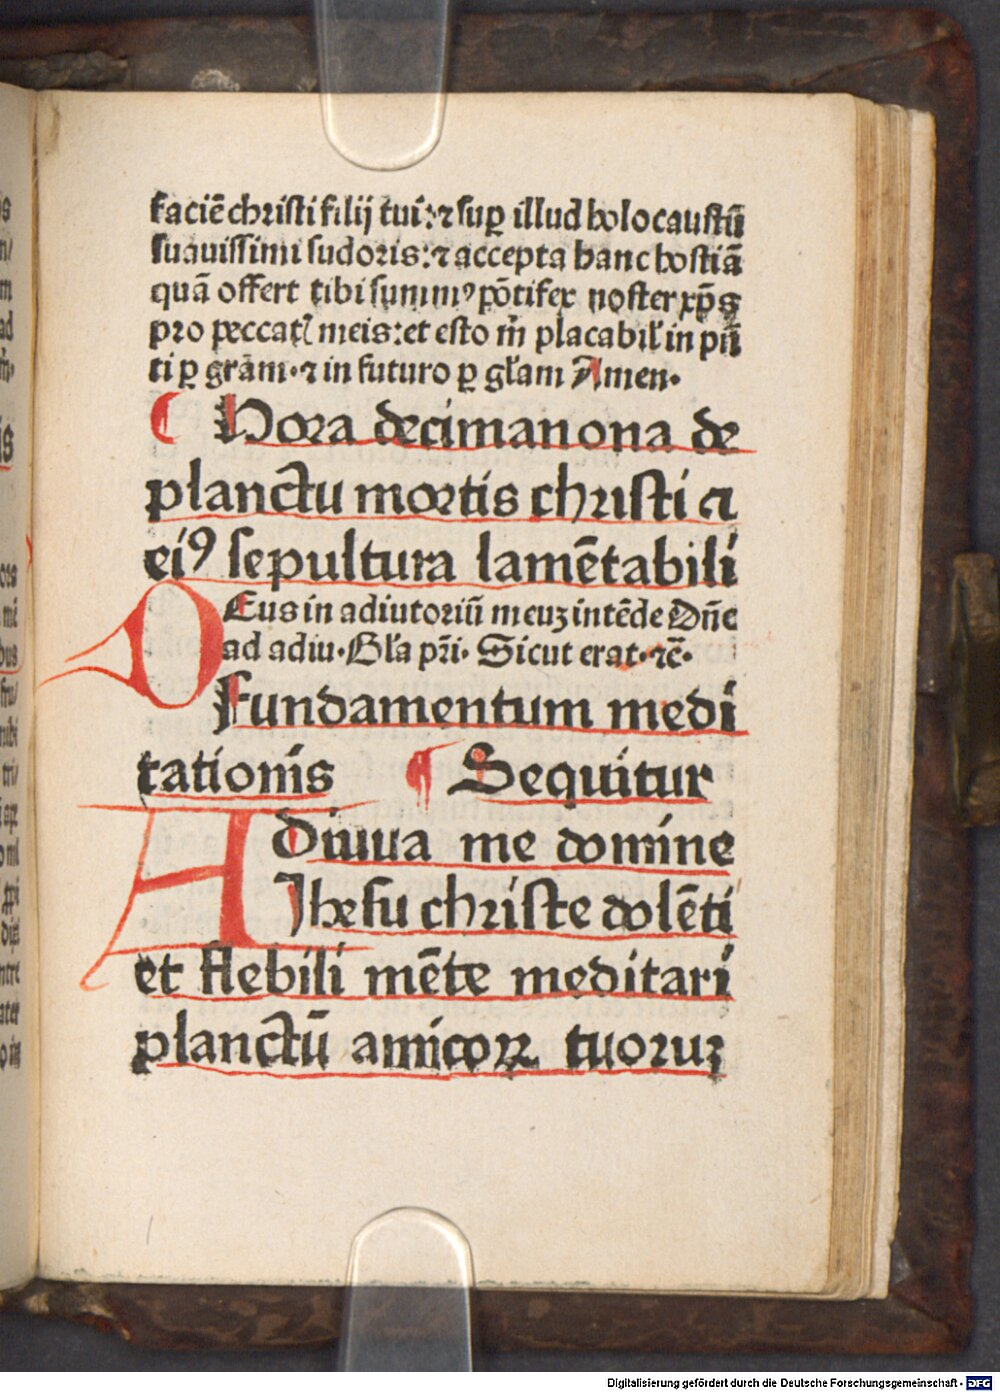 faciē christi filij tui: ⁊ suꝑ illud holocaustū
suauissimi sudoris: ⁊ accepta hanc hostiā
quā offert tibi summꝰ pōtifex noster xp̄s
pro peccatꝭ meis: et esto m̄ placabil' in pn̄
ti ꝑ grām· ⁊ in futuro ꝑ gl'am Amen·
¶ Hora decimanona de
planctu mortis christi ⁊
eiꝰ sepultura lamētabili
DEus in adiutoriū meuꝫ intēde Dn̄e
ad adiu· Gl'a pr̄i· Sicut erat· ⁊c̄·
Fundamentum medi
tationis ¶ Sequitur
Adiuua me domine
Jhesu christe dolēti
et flebili mēte meditari
planctū amicoꝝ tuoruꝫ
Digitalisierung gefördert durch die Deutsche Forschungsgemeinschaft - DFG